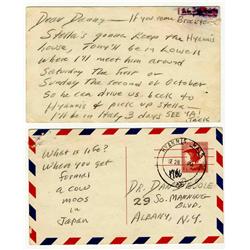 Dear Danny — If you come
Stella's gonna keep the Hyannis
house, Tony'll be in Lowell
where I'll meet him around
Saturday the first or
Sunday the Second of October
So he can drive us back to
Hyannis & pick up Stella —
I'll be in Italy 3 days SEE YA!
Jack
What is life?
When you get
a cow
moos in
Japan
HYANNIS MASS
Dr. Dan
29 So. Manning
Blvd,
Albany, N.Y.